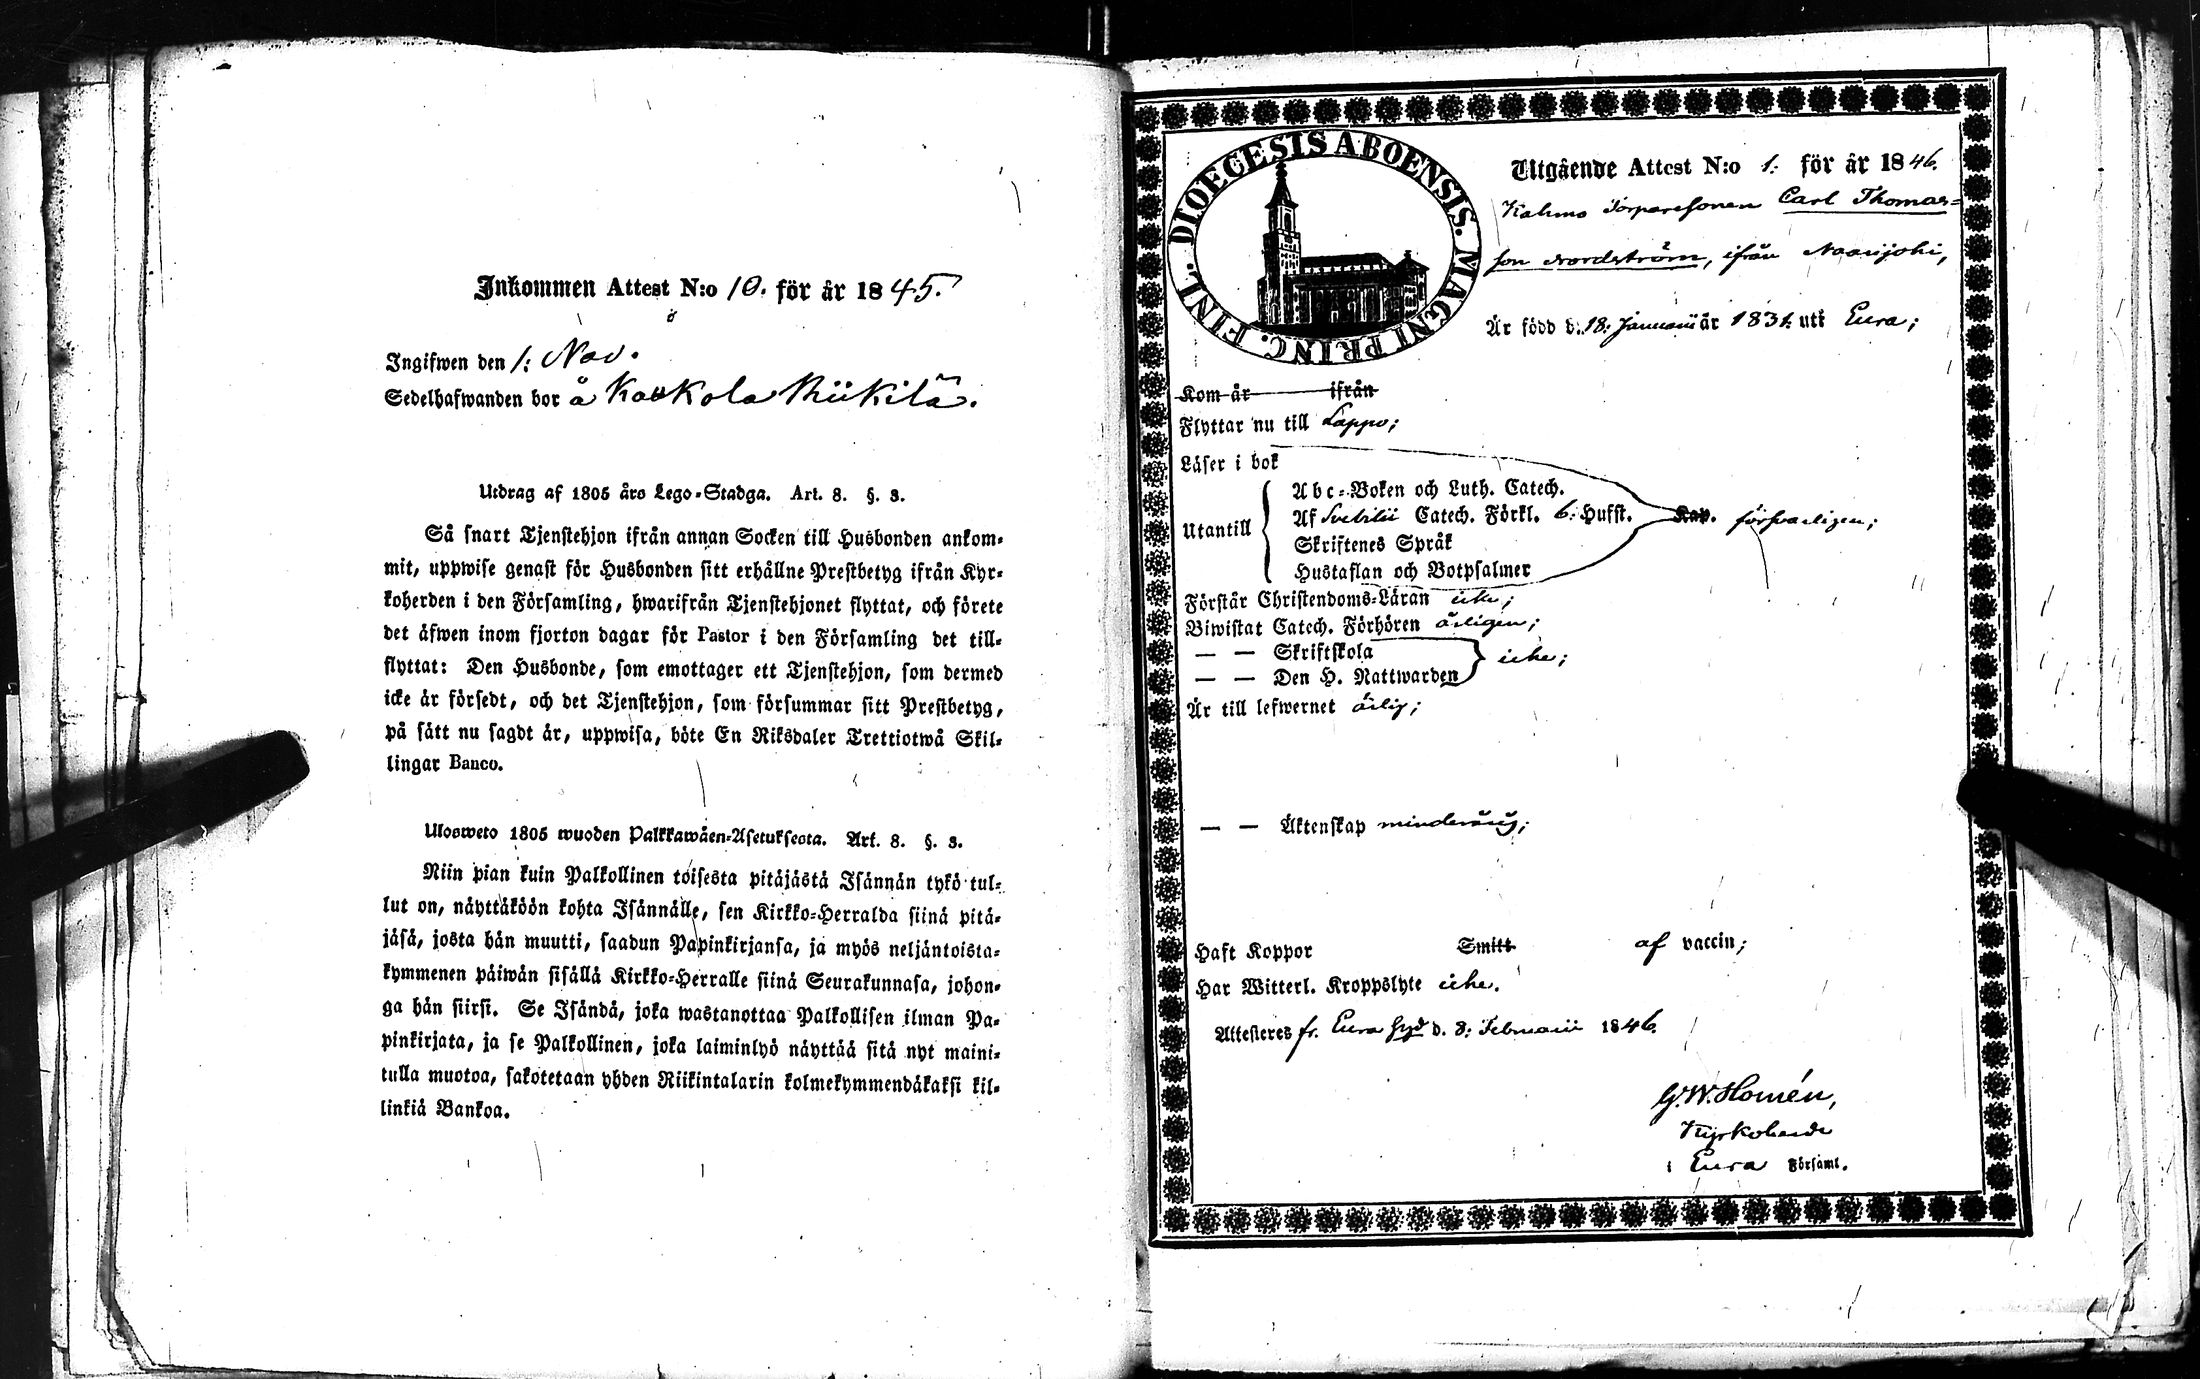 Inkommen Attest N:o 10. för år 1845.
Ingifwen den 1: Nov.
Sedelhafwanden bor å Kaukola Riikilä.
Utdrag af 1805 års Lego-Stadga. Art. 8. §. 3.
Så snart Tjenstehjon ifrån annan Socken till Husbonden ankom-
mit, uppwise genast för Husbonden sitt erhållne Prestbetyg ifrån Kyr-
koherden i den Församling, hwarifrån Tjenstehjonet flyttat, och förete
det äfwen inom fjorton dagar för Pastor i den Församling det till-
flyttat: Den Husbonde, som emottager ett Tjenstehjon, som dermed
icke är försedt, och det Tjenstehjon, som försummar sitt Prestbetyg,
på sätt nu sagdt är, uppwisa, böte En Riksdaler Trettiotwå Skil-
lingar Banco.
Ulosweto 1805 wuoden Palkkawäen-Asetuksesta. Art. 8. §. 3.
Niin pian kuin Palkollinen toisesta pitäjästä Isännän tykö tul-
lut on, näyttäköön kohta Isännälle, sen Kirkko-Herralda siinä pitä-
jäsä, josta hän muutti, saadun Papinkirjansa, ja myös neljäntoista-
kymmenen päiwän sisällä Kirkko-Herralle siinä Seurakunnasa, johon-
ga hän siirsi. Se Isändä, joka wastanottaa Palkollisen ilman Pa-
pinkirjata, ja se Palkollinen, joka laiminlyö näyttää sitä nyt maini-
tulla muotoa, sakotetaan yhden Riikintalarin kolmekymmendäkaksi kil-
linkiä Bankoa.
DIOECESIS ABOENSIS. MAGNI PRINC. FINL.
Utgående Attest N:o 1: för år 1846.
Torparesonen Carl Thomas=
son Nordström, ifrån Naarijoki,
Är född d. 18: Januarii år 1831. uti Eura;
Kom år ifrån
Flyttar nu till Lappo;
Läser i bok
Utantill
Abc-Boken och Luth. Catech.
Af Svebilii Catech. Förkl. 6: Hufst. Kap. försvarligen;
Skriftenes Språk
Hustaflan och Botpsalmer
Förstår Christendoms-Läran icke;
Biwistat Catech. Förhören ärligen;
— — Skriftskola
— — Den H. Nattwarden icke;
Är till lefwernet ärlig;
— — Äktenskap minderårig;
Haft Koppor Smitt af vaccin;
Har Witterl. Kroppslyte icke.
Attesteres fr. Eura d. 3: Februarii 1846.
G. W. Homén,
Kyrkoherde
i Eura Församl.